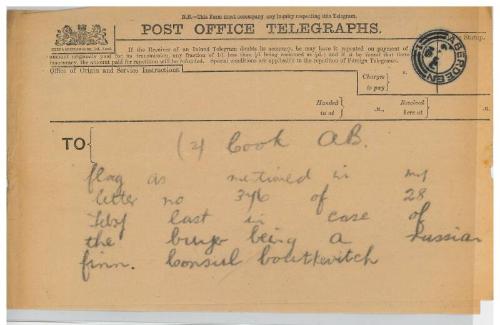 N.B.—This Form must accompany any inquiry respecting this Telegram.
POST OFFICE TELEGRAPHS.
If the Receiver of an Inland Telegram doubts its accuracy, he may have it repeated on payment of
amount originally paid for its transmission, any fraction of 1d. less than ½d. being reckoned as ½d.; and if it be found that there
inaccuracy, the amount paid for repetition will be refunded. Special conditions are applicable to the repetition of Foreign Telegrams.
Office of Origin and Service Instructions
Charges
to pay
Stamp.
ABERDEEN
Handed
in at
Received
here at
TO
(2) Cook AB.
flag as metioned in my
letter no 376 of 28
Feby last in case of
the buyer being a Russian
finn. Consul boutkevitch